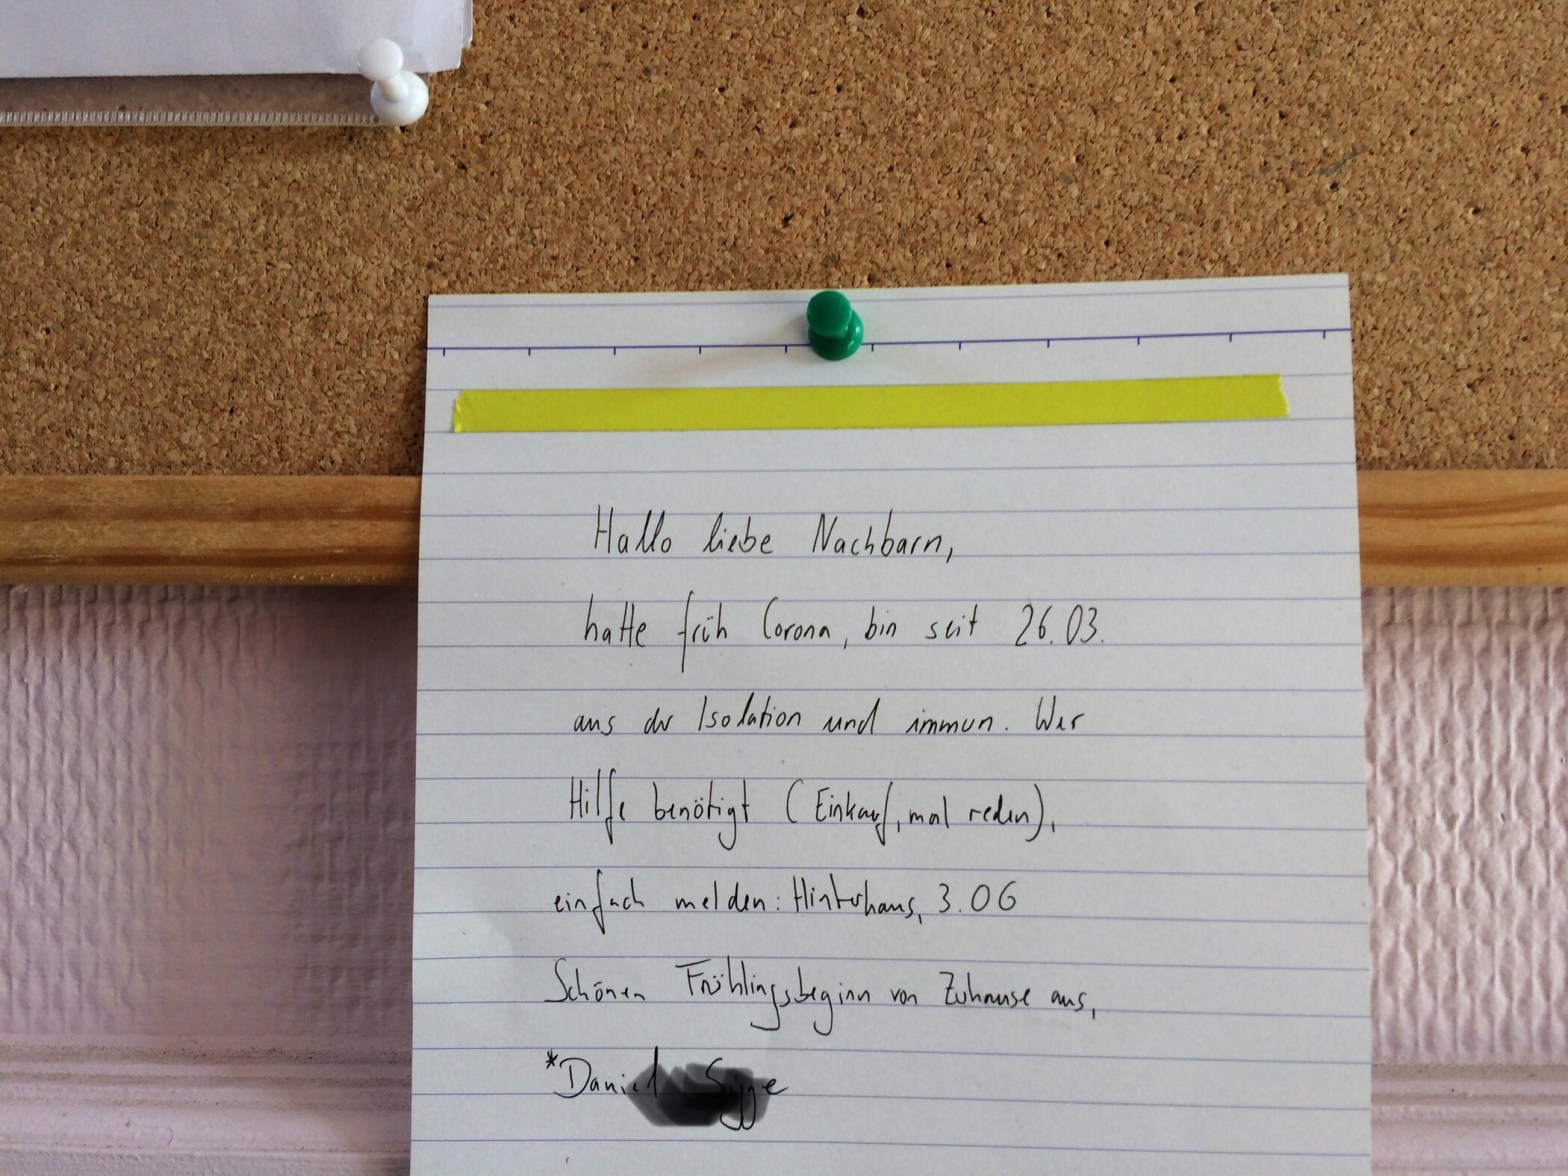 Hallo liebe Nachbarn,
hatte früh Corona, bin seit 26.03.
aus der Isolation und immun. Wer
Hilfe benötigt (Einkauf, mal reden),
einfach melden: Hinterhaus, 3.OG
Schönen Frühlingsbeginn von Zuhause aus,
*Daniel